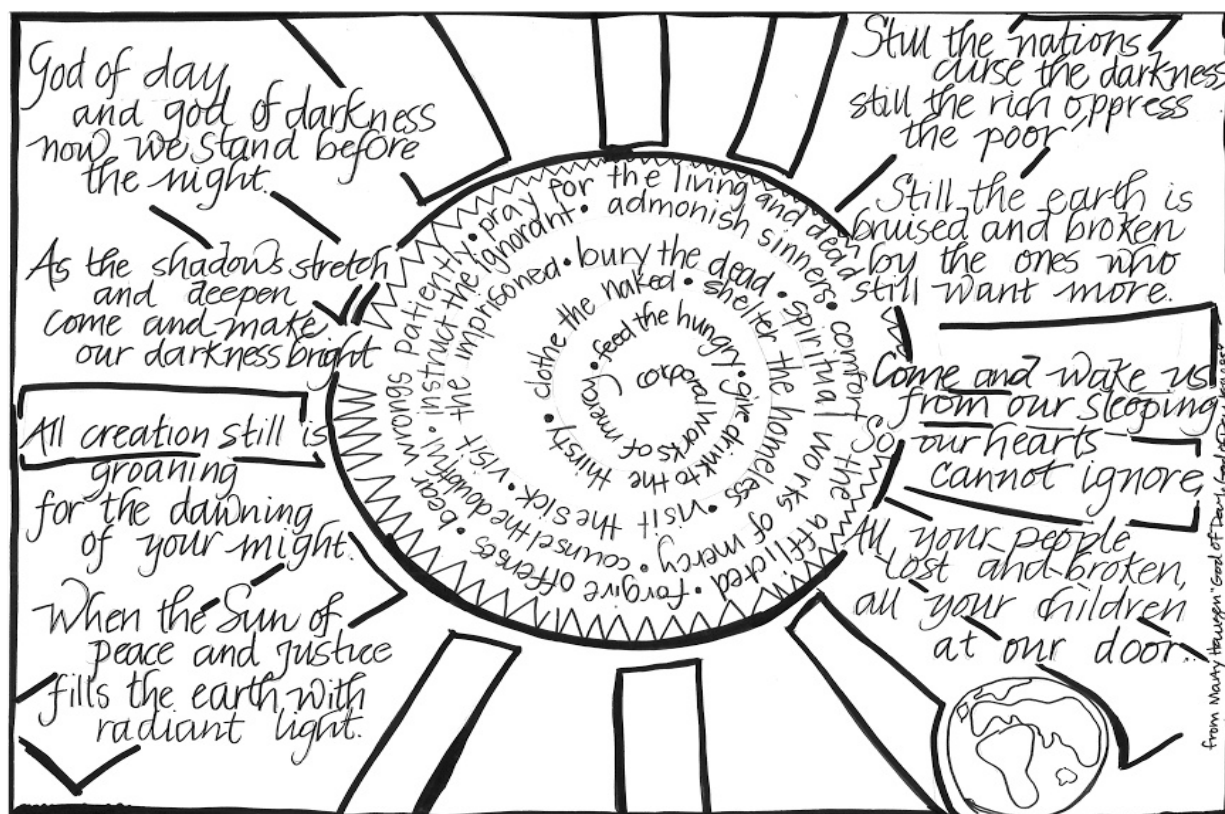 God of day
and god of darkness
now we stand before
the night.
As the shadows stretch
and deepen
come and make
our darkness bright
All creation still is
groaning
for the dawning
of your might.
When the Sun of
peace and justice
fills the earth with
radiant light.
corporal works of mercy • feed the hungry • give drink to the thirsty • clothe the naked • shelter the homeless • visit the sick • visit the imprisoned • bury the dead • spiritual works of mercy • counsel the doubtful • instruct the ignorant • admonish sinners • comfort the afflicted • forgive offenses • bear wrongs patiently • pray for the living and dead
Still the nations
curse the darkness
still the rich oppress
the poor
Still the earth is
bruised and broken
by the ones who
still want more.
Come and wake us
from our sleeping
So our hearts
cannot ignore
All your people
lost and broken,
all your children
at our door.
from Marty Haugen "God of Day and God of